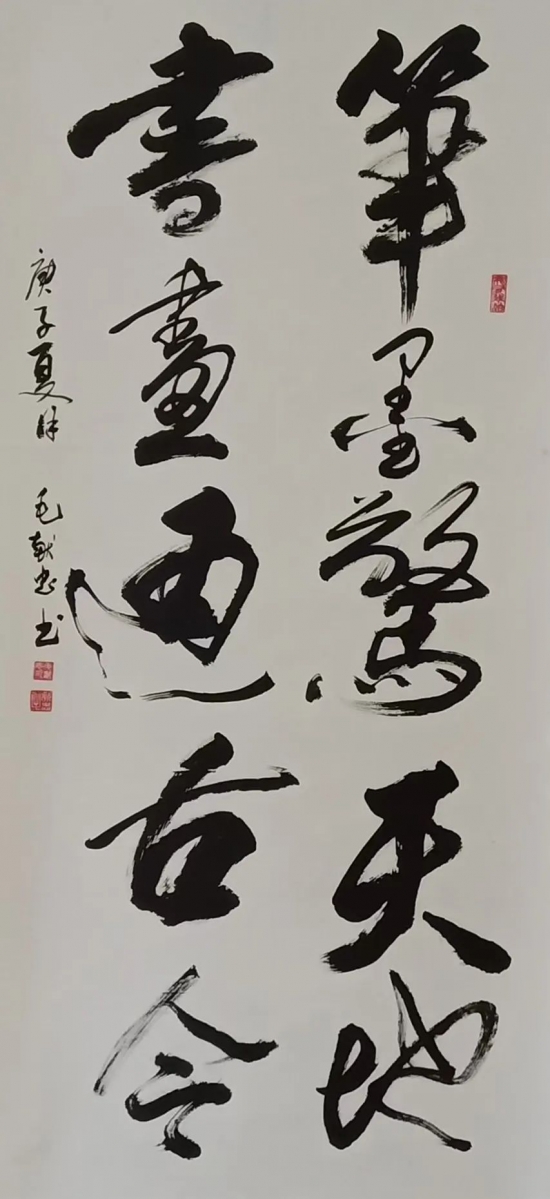 筆墨驚天地
書畫通古今
庚子夏月 毛献忠书